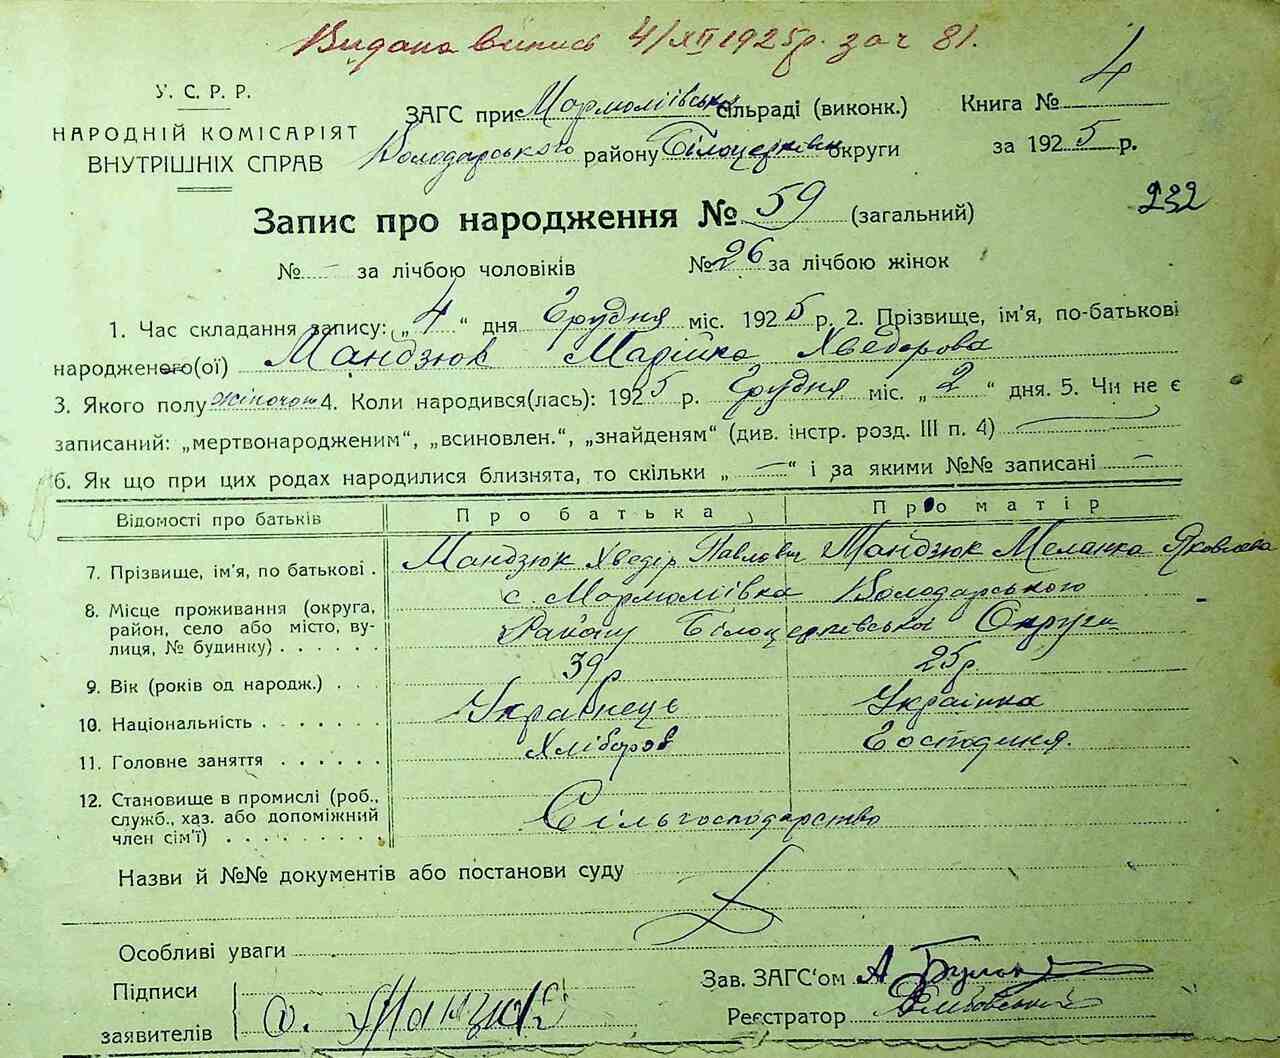 Видана випись 4/XII 1925р. за ч 81.
У. С. Р. Р.
НАРОДНІЙ КОМІСАРІЯТ
ВНУТРІШНІХ СПРАВ
ЗАГС при Мармоліївська сільраді (виконк.)
Володарського району Білоцерківськ округи
Книга № 4
за 1925 р.
232
Запис про народження № 59 (загальний)
№ – за лічбою чоловіків № 26 за лічбою жінок
1. Час складання запису: „ 4 “ дня Грудня міс. 1925 р. 2. Прізвище, ім'я, по-батькові
народженого(ої) Мандзюк Марійка Хведорова
3. Якого полу жіночого 4. Коли народився(лась): 1925 р. Грудня міс. „ 2 “ дня. 5. Чи не є
записаний: „мертвонародженим“, „всиновлен.“, „знайденям“ (див. інстр. розд. III п. 4) —
6. Як що при цих родах народилися близнята, то скільки „ — “ і за якими №№ записані —
Відомості про батьків Про батька Про матір
7. Прізвище, ім'я, по батькові . Мандзюк Хведір Павлович Мандзюк Меланка Яковлева
8. Місце проживання (округа, район, село або місто, вулиця, № будинку) . . . . . . с. Мармоліївка Володарського
Району Білоцерківської Округи
9. Вік (років од народж.) . . . 39 р 25 р.
10. Національність . . . . . . . Українець Українка
11. Головне заняття . . . . . . Хлібороб Господиня.
12. Становище в промислі (роб., служб., хаз. або допоміжний член сім'ї) . . . . . . . . . Сільгосподарство
Назви й №№ документів або постанови суду
Особливі уваги
Зав. ЗАГС'ом А
Підписи
заявителів
Реєстратор